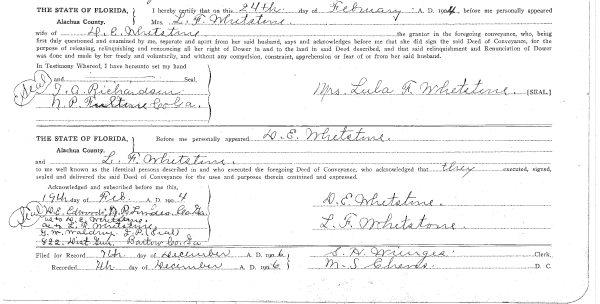 THE STATE OF FLORIDA, } I hereby certify that on this 24th day of February A. D. 1904 before me personally appeared
Alachua County. Mrs. L. F. Whetstone
wife of D. E. Whetstone the grantor in the foregoing conveyance, who, being
first duly questioned and examined by me, separate and apart from her said husband, says and acknowledges before me that she did sign the said Deed of Conveyance, for the
purpose of releasing, relinquishing and renouncing all her right of Dower in and to the land in said Deed described, and that said relinquishment and Renunciation of Dower
was done and made by her freely and voluntarily, and without any compulsion, constraint, apprehension or fear of or from her said husband.
In Testimony Whereof, I have hereunto set my hand
and Seal.
(Seal) J. A. Richardson Mrs. Lula F. Whetstone. [SEAL.]
N. P. Co Ga.
THE STATE OF FLORIDA, } Before me personally appeared D. E. Whetstone.
Alachua County.
and L. F. Whetstone.
to me well known as the identical persons described in and who executed the foregoing Deed of Conveyance, who acknowledged that they executed, signed,
sealed and delivered the said Deed of Conveyance for the uses and purposes therein contained and expressed.
Acknowledged and subscribed before me this,
19th day of Feb. A. D. 1904 D. E. Whetstone.
(Seal) Edwards, N. P. Co Ga.
as to D. E. Whetstone. L. F. Whetstone.
as to L. F. Whetstone
J. P. (Seal)
822. Dist Bartow Co. Ga
Filed for Record 7th day of December A. D. 1906 S. H. Wienges Clerk.
Recorded 7th day of December A. D. 1906 M. S. Cheves D. C.